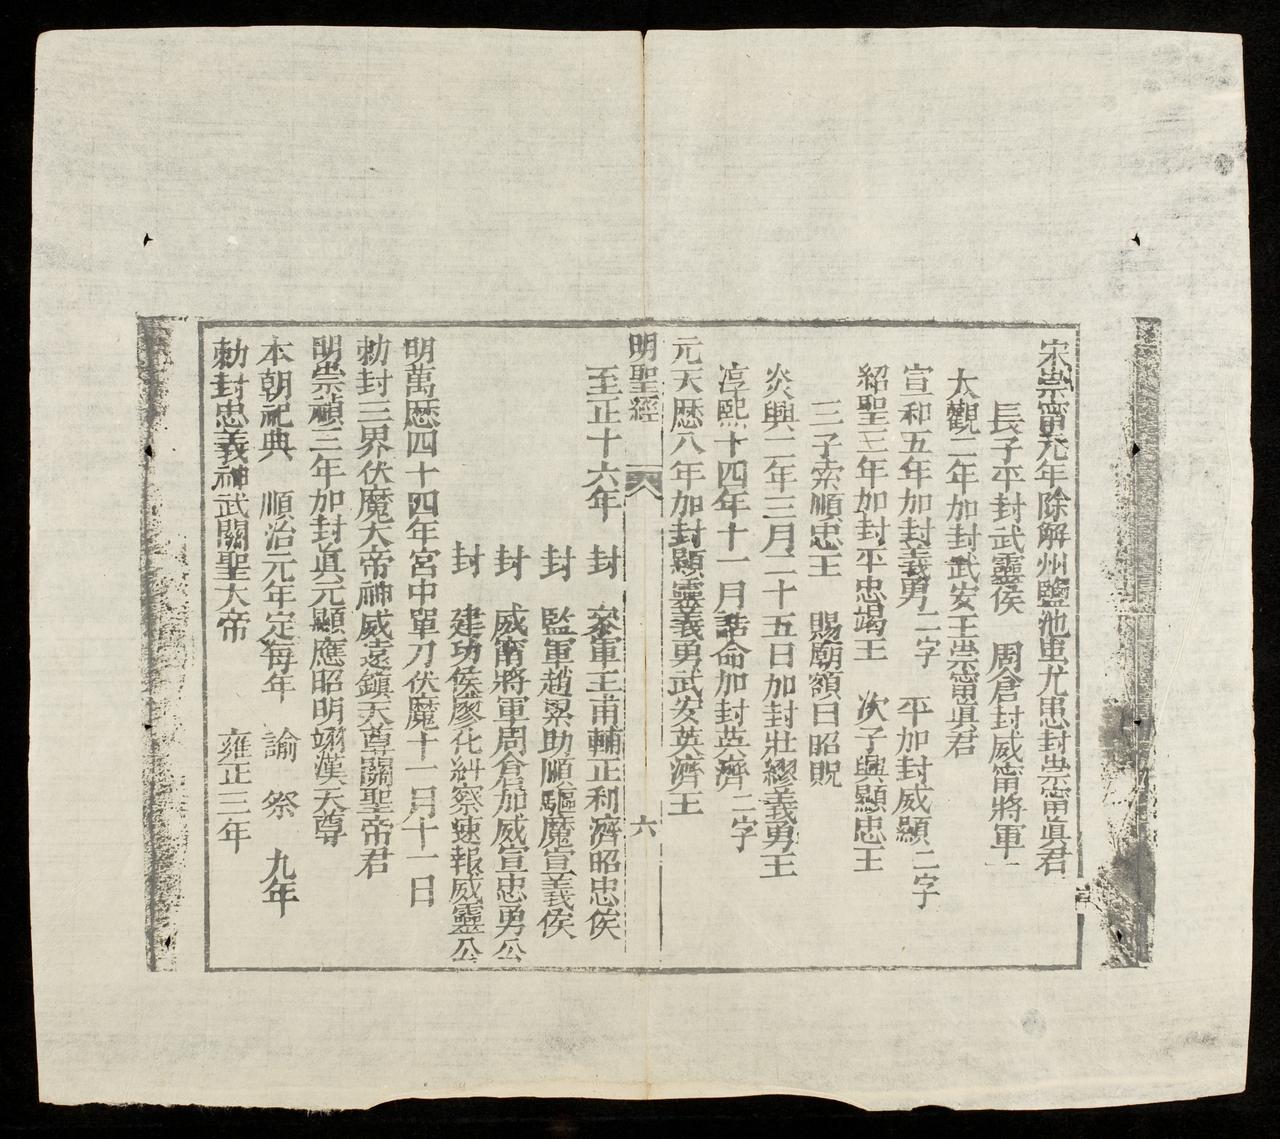 宋崇甯元年除解州鹽池蚩尤患封崇甯眞君
長子平封武靈侯 周倉封威甯將軍
大觀二年加封武安王崇甯眞君
宣和五年加封義勇二字 平加封威顯二字
紹聖三年加封平忠竭王 次子興顯忠王
三子索順忠王 賜廟額曰昭貺
炎興二年三月二十五日加封壯繆義勇王
淳熙十四年十一月誥命加封英濟二字
元天歷八年加封顯靈義勇武安英濟王
明聖經 六
至正十六年 封 叅軍王甫輔正利濟昭忠侯
封 監軍趙累助順驅魔宣義侯
封 威甯將軍周倉加威宣忠勇公
封 建功侯廖化糾察速報威靈公
明萬歷四十四年宮中單刀伏魔十一月十一日
勅封三界伏魔大帝神威遠鎮天尊關聖帝君
明崇禎三年加封眞元顯應昭明翊漢天尊
本朝祀典 順治元年定每年 諭 祭 九年
勅封忠義神武關聖大帝 雍正三年